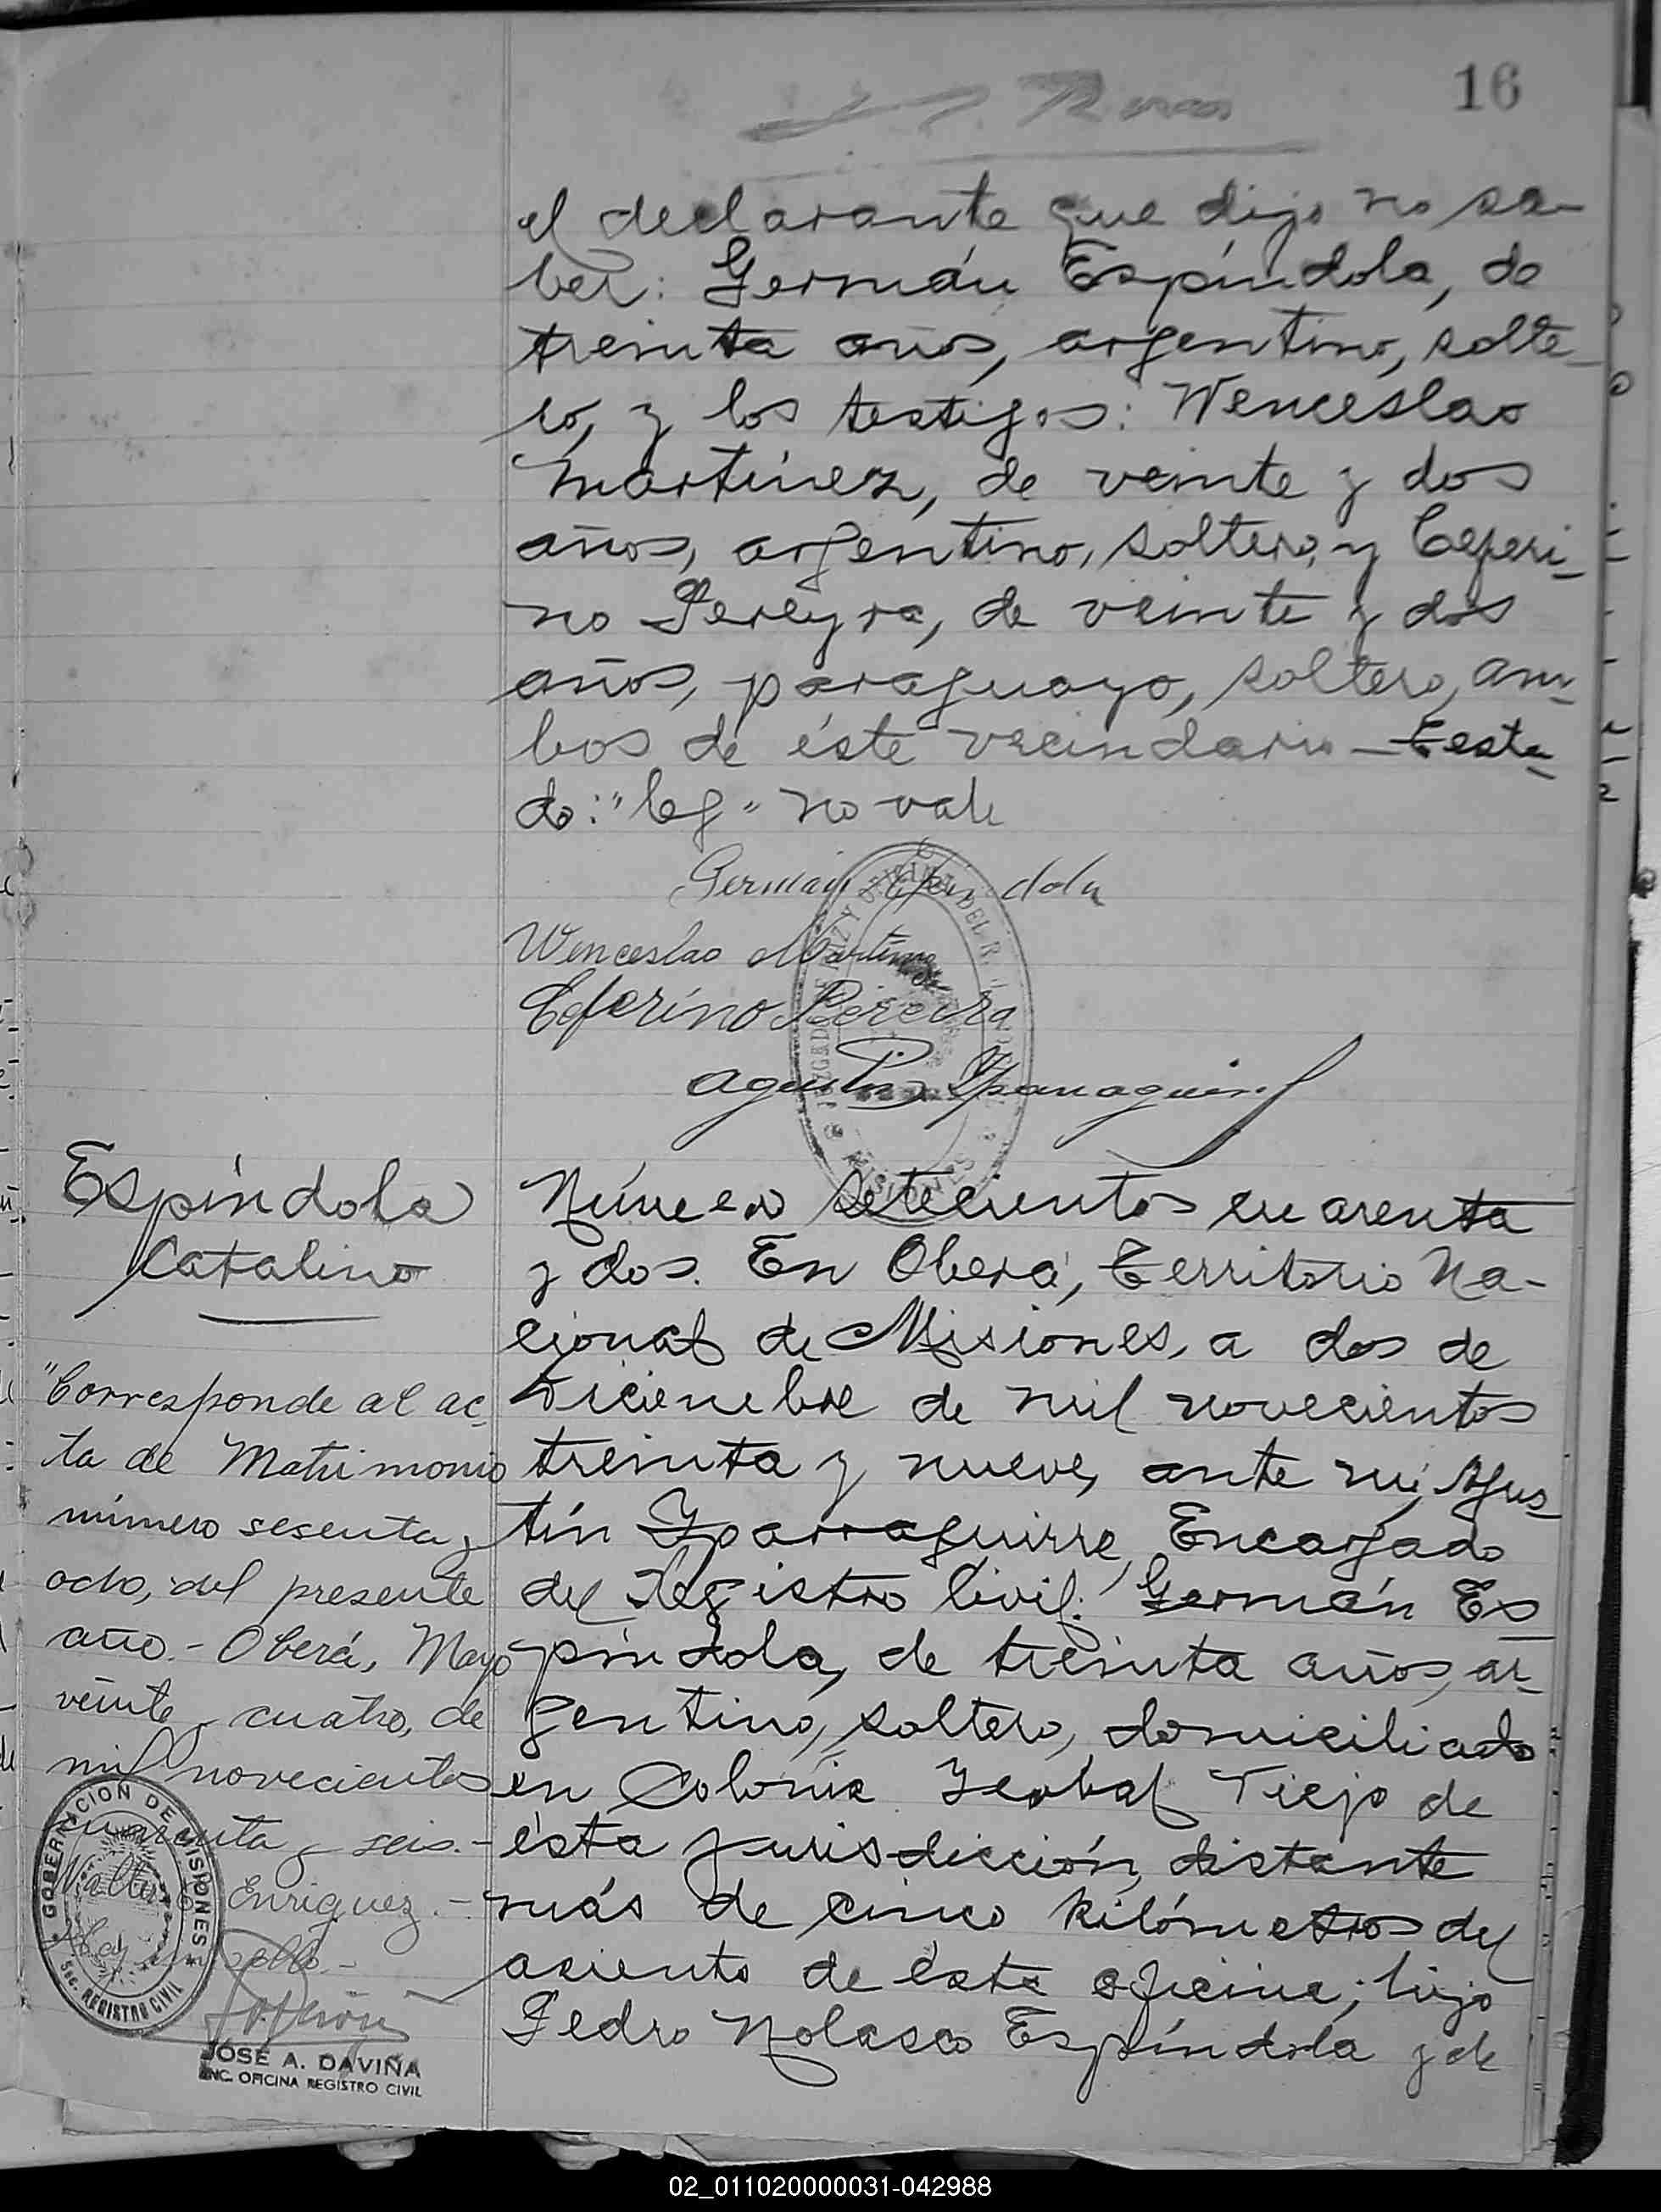 16
el declarante que dijo no sa-
ber: Germán Espíndola, de
treinta años, argentino, solte-
ro, y los testigos: Wenceslao
Martínez, de veinte y dos
años, argentino, soltero, y Ceferi-
no Pereyra, de veinte y dos
años, paraguayo, soltero, am-
bos de éste vecindario - Testa-
do: "leg" no vale
German Espindola
Wenceslao Martinez
Ceferino Pereira
Agustin Yparraguirre
Espíndola
Catalino
"Corresponde al ac-
ta de Matrimonio
número sesenta y
ocho, del presente
año.- Oberá, Mayo
veinte y cuatro, de
mil novecientos
cuarenta y seis.-
Walter Enriquez.-
Hay un sello.-
GOBERNACION DE MISIONES
SEC. REGISTRO CIVIL
JOSE A. DAVIÑA
ENC. OFICINA REGISTRO CIVIL
Número setecientos cuarenta
y dos. En Oberá, Territorio Na-
cional de Misiones, a dos de
Diciembre de mil novecientos
treinta y nueve, ante mí, Agus-
tín Yparraguirre, Encargado
del Registro Civil: Germán Es-
píndola, de treinta años, ar-
gentino, soltero, domiciliado
en Colonia Yerbal Viejo de
ésta jurisdicción, distante
más de cinco kilómetros del
asiento de ésta oficina; hijo
Pedro Nolasco Espíndola y de
02_011020000031-042988